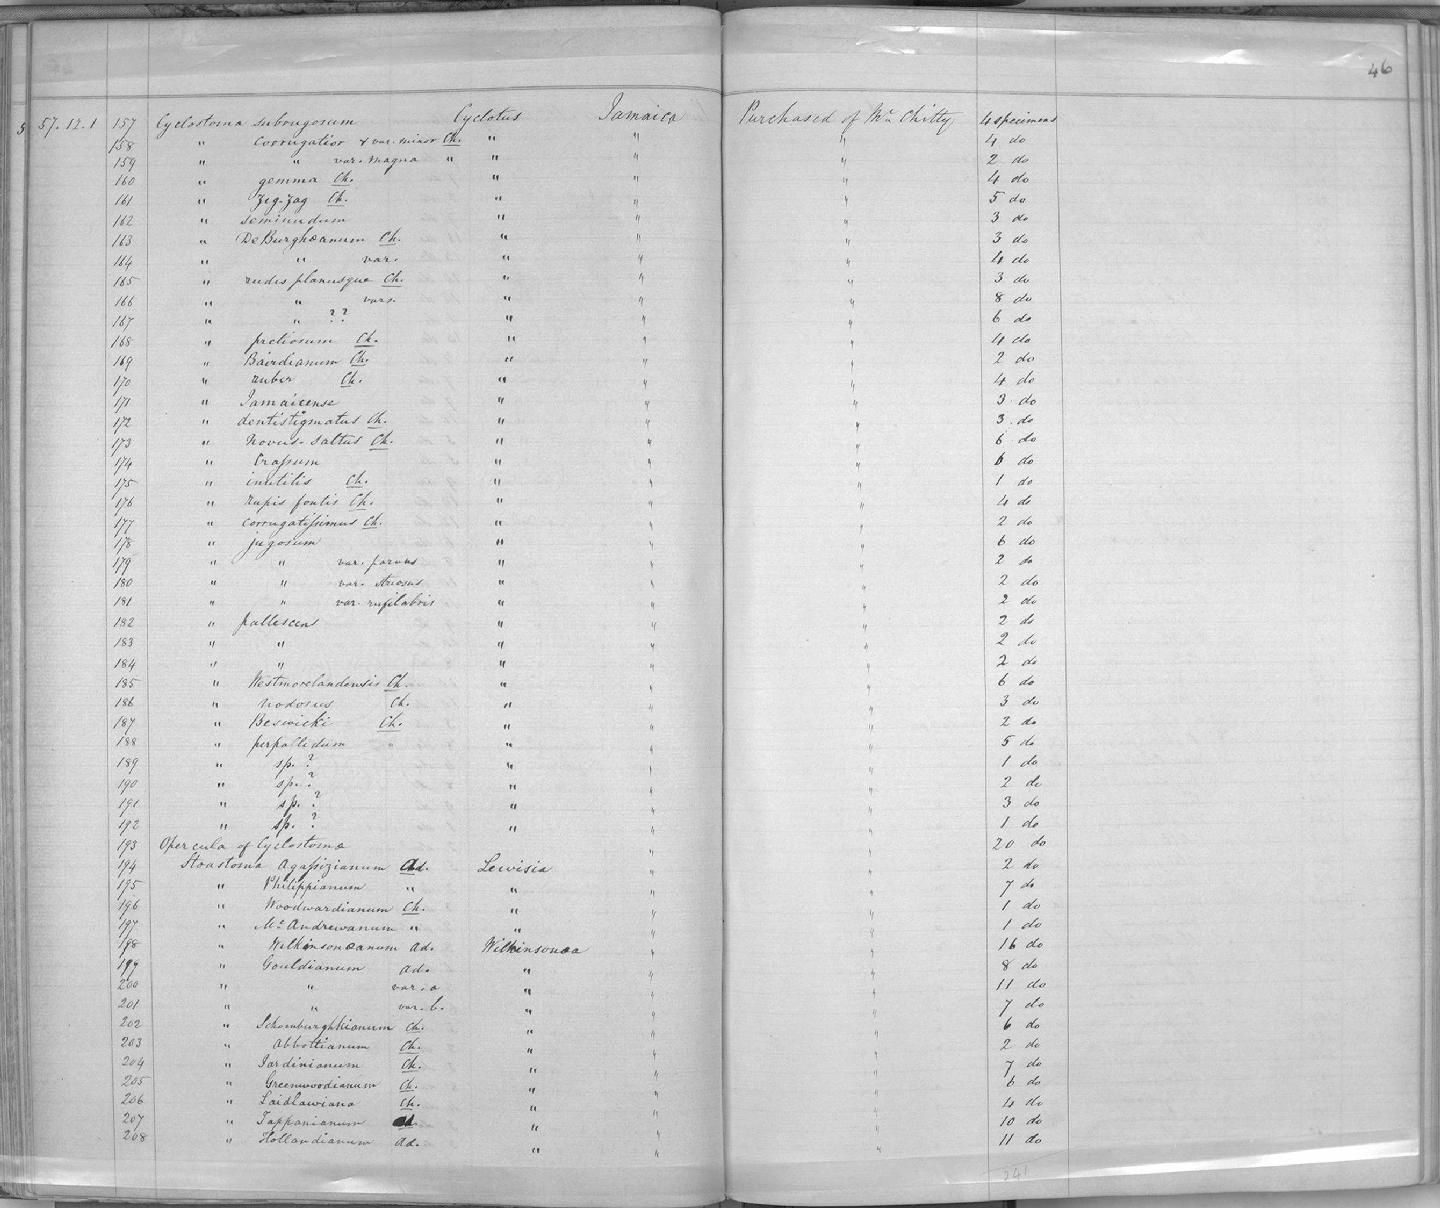 46
57.12.1 157 Cyclostoma subrugosum Cyclotus Jamaica Purchased of Mr. Chitty 4 specimens
158 " corrugatior & var. minor Ch. " " " 4 do
159 " " var. magna " " " " 2 do
160 " gemma Ch. " " " 4 do
161 " Zig-zag Ch. " " " 5 do
162 " seminudum " " " 3 do
163 " De Burghæanum Ch. " " " 3 do
164 " " var. " " " 4 do
165 " rudis planusque Ch. " " " 3 do
166 " " vars. " " " 8 do
167 " " ?? " " " 6 do
168 " pretiosum Ch. " " " 4 do
169 " Bairdianum Ch. " " " 2 do
170 " ruber Ch. " " " 4 do
171 " Jamaicense " " " 3 do
172 " dentistigmatus Ch. " " " 3 do
173 " Novus-saltus Ch. " " " 6 do
174 " Crassum " " " 6 do
175 " inutilis Ch. " " " 1 do
176 " rupis fontis Ch. " " " 4 do
177 " corrugatissimus Ch. " " " 2 do
178 " jugosum " " " 6 do
179 " " var. parvus " " " 2 do
180 " " var. " " " 2 do
181 " " var. rufilabris " " " 2 do
182 " pallescens " " " 2 do
183 " " " " " 2 do
184 " " " " " 2 do
185 " Westmorelandensis Ch. " " " 6 do
186 " nodosus Ch. " " " 3 do
187 " Beswicki Ch. " " " 2 do
188 " perpallidum " " " " 5 do
189 " sp. ? " " " 1 do
190 " sp. ? " " " 2 do
191 " sp. ? " " " 3 do
192 " sp. ? " " " 1 do
193 Opercula of Cyclostomæ " " 20 do
194 Stoastoma Agassizianum Ad. Lewisia " " 2 do
195 " Philippianum " " " " 7 do
196 " Woodwardianum Ch. " " " 1 do
197 " McAndrewanum " " " " 1 do
198 " Wilkinsonæanum Ad. Wilkinsonæa " " 16 do
199 " Gouldianum Ad. " " " 8 do
200 " " var. a " " " 11 do
201 " " var. b. " " " 7 do
202 " Schomburghkianum Ch. " " " 6 do
203 " Abbottianum Ch. " " " 2 do
204 " Jardinianum Ch. " " " 7 do
205 " Greenwoodianum Ch. " " " 6 do
206 " Laidlawiana Ch. " " " 4 do
207 " Tappanianum Ad. " " " 10 do
208 " Hollandianum Ad. " " " 11 do
241